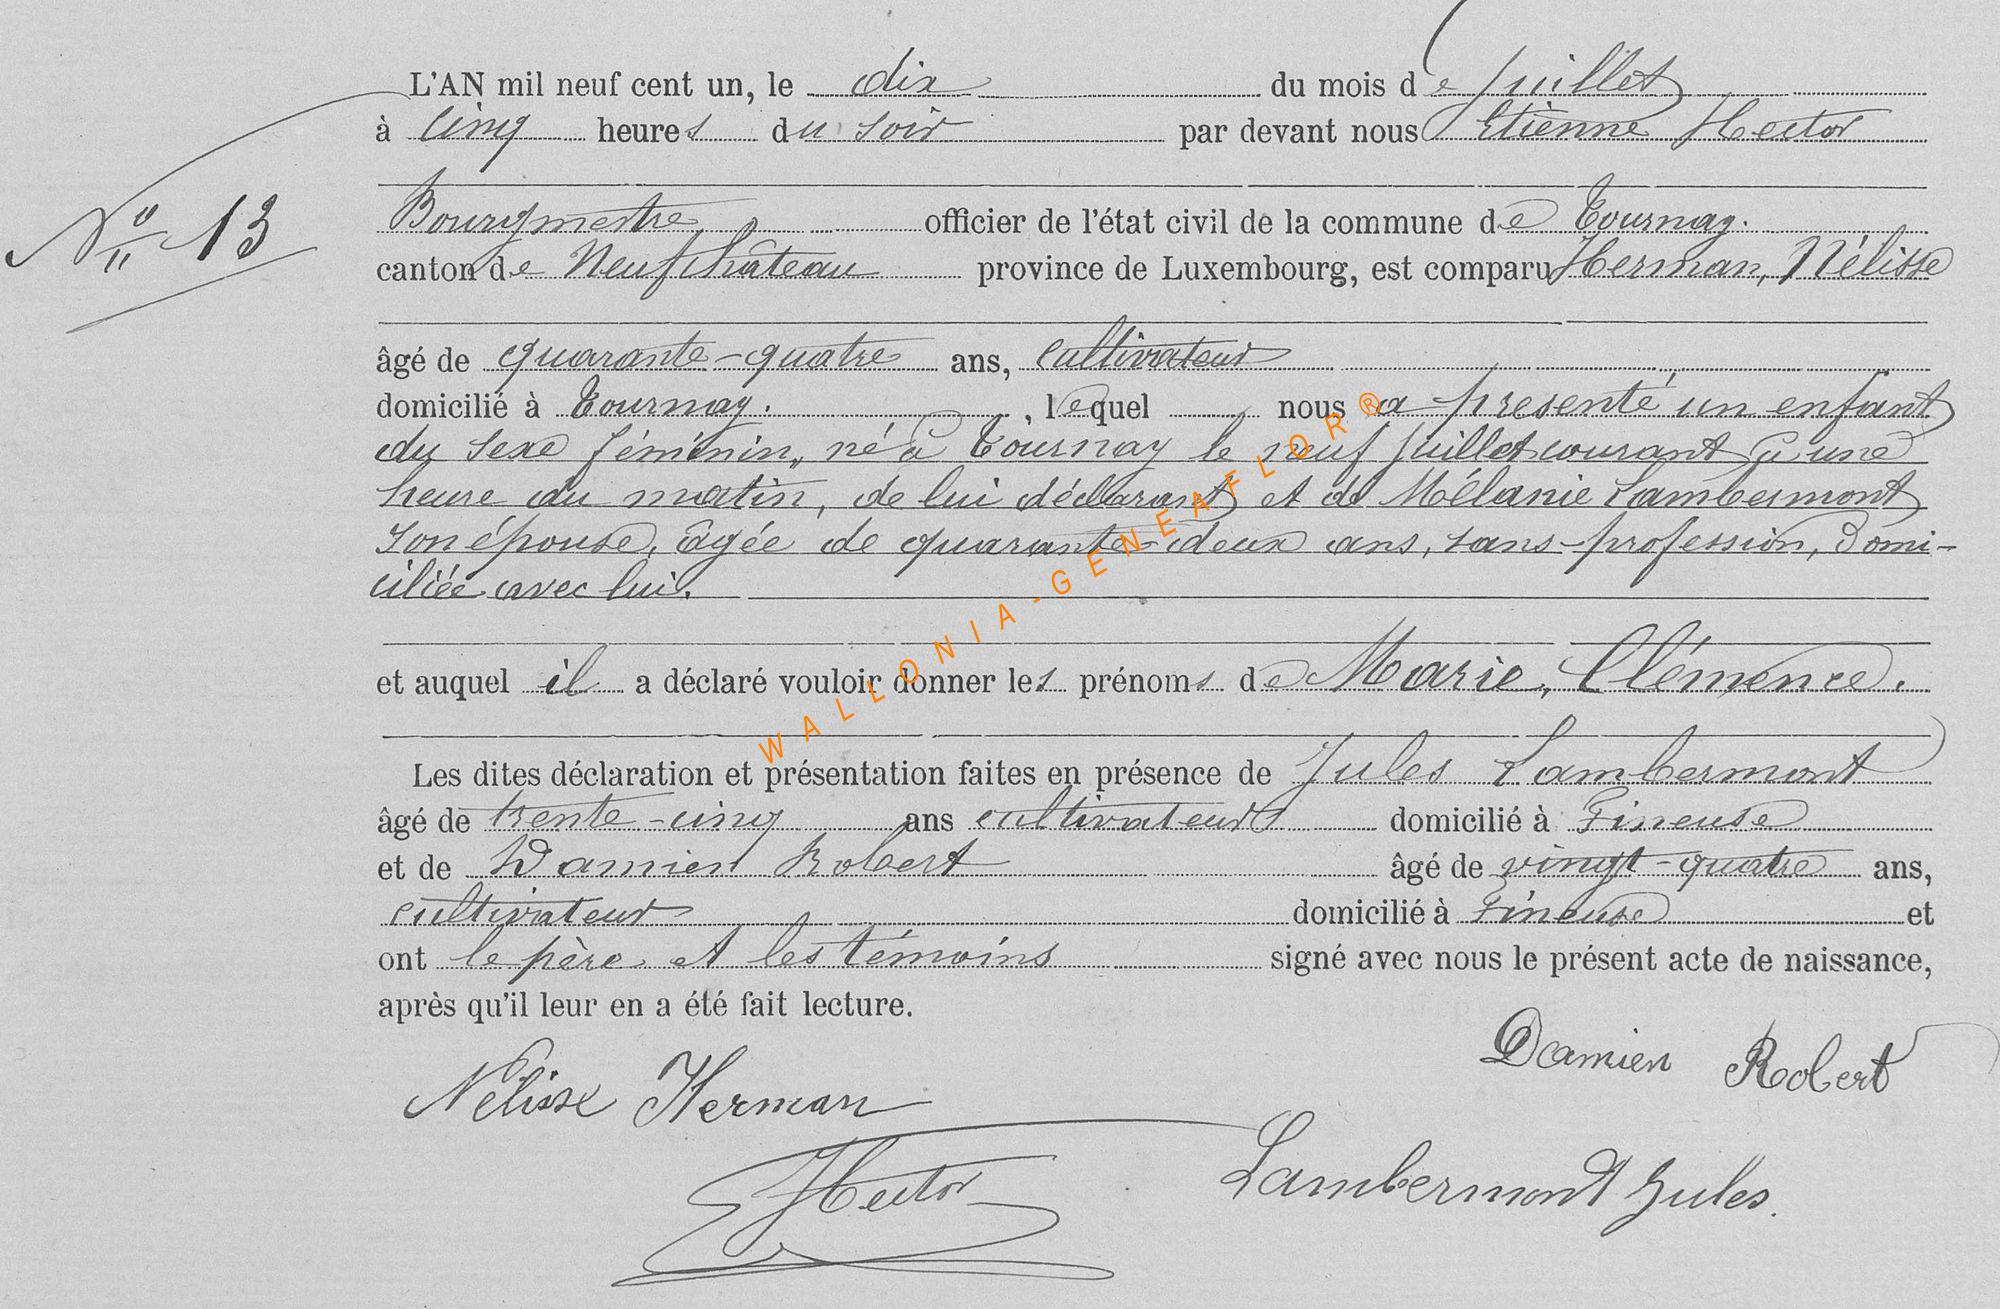 L'AN mil neuf cent un, le dix du mois de juillet
à cinq heures du soir par devant nous Etienne Hector
N° 13
Bourgmestre officier de l'état civil de la commune de Tournay.
canton de Neufchâteau province de Luxembourg, est comparu Herman, Nélisse
âgé de quarante-quatre ans, cultivateur
domicilié à Tournay. , lequel nous a présenté un enfant
du sexe féminin, né à Tournay le neuf juillet courant à une
heure du matin, de lui déclarant et de Mélanie Lambermont
son épouse, âgée de quarante-deux ans, sans-profession, domi-
ciliée avec lui.
et auquel il a déclaré vouloir donner les prénoms de Marie, Clémence.
Les dites déclaration et présentation faites en présence de Jules Lambermont
âgé de trente-cinq ans cultivateur domicilié à Fineuse
et de Damien Robert âgé de vingt-quatre ans,
cultivateur domicilié à Fineuse et
ont le père et les témoins signé avec nous le présent acte de naissance,
après qu'il leur en a été fait lecture.
Damien Robert
Nélisse Herman
Hector
Lambermont Jules.
WALLONIA-GENEAFLOR®